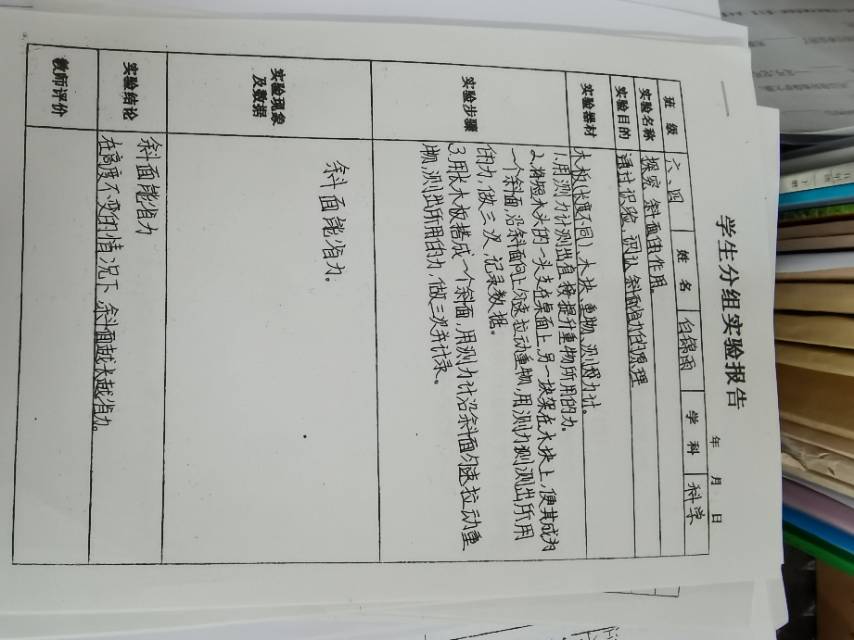 学生分组实验报告
年 月 日
班级 六、四 姓名 白锦雨 学科 科学
实验名称 探究斜面的作用。
实验目的 通过识验,识认斜面省力的原理
实验器材 木板(长度不同)、木块、重物、测力计。
实验步骤
1.用测力计测出直接提升重物所用的力。
2.将短木头的一头支在桌面上,另一块架在木块上,使其成为
一个斜面,沿斜面向上匀速拉动重物,用测力测测出所用
的力,做三次,记录数据。
3.用长木板搭成一个斜面,用测力计沿斜面匀速拉动重
物,测出所用的力,做三次并计录。
实验现象
及数据
斜面能省力。
实验结论
斜面能省力
在高度不变的情况下,斜面越长越省力。
教师评价